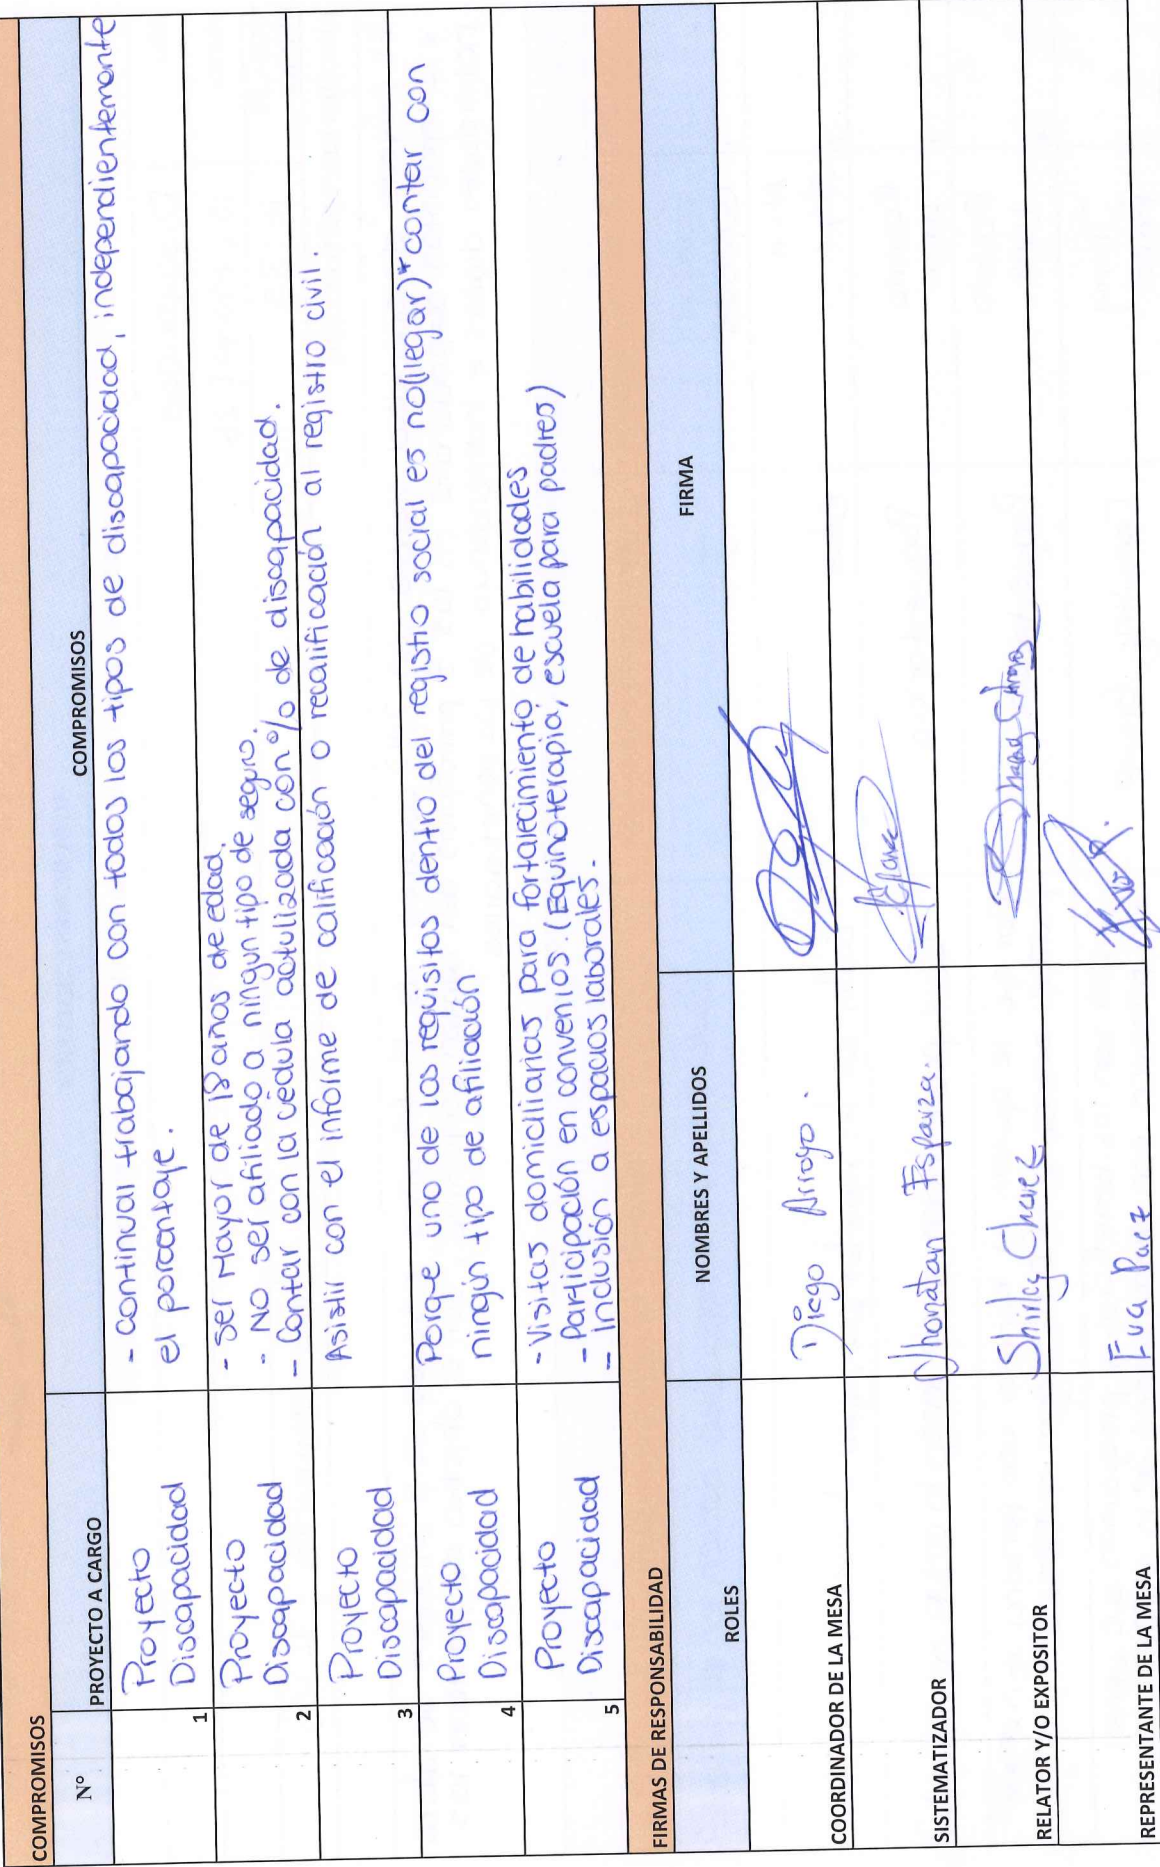 COMPROMISOS
N° PROYECTO A CARGO COMPROMISOS
1 Proyecto Discapacidad
- continuar trabajando con todos los tipos de discapacidad, independientemente
el porcentaje.
2 Proyecto Discapacidad
- Ser Mayor de 18 años de edad.
- NO ser afiliado a ningun tipo de seguro.
- Contar con la cédula actulizada con % de discapacidad.
3 Proyecto Discapacidad
Asistir con el informe de calificación o recalificación al registro civil.
4 Proyecto Discapacidad
Porque uno de los requisitos dentro del registro social es no(llegar)* contar con
ningún tipo de afiliación
5 Proyecto Discapacidad
- Visitas domiciliarias para fortalecimiento de habilidades
- Participación en convenios. (Equinoterapia, escuela para padres)
- Inclusión a espacios laborales.
FIRMAS DE RESPONSABILIDAD
ROLES NOMBRES Y APELLIDOS FIRMA
COORDINADOR DE LA MESA Diego Arroyo.
SISTEMATIZADOR Jhonatan Esparza.
RELATOR Y/O EXPOSITOR Shirley Chavez
REPRESENTANTE DE LA MESA Eva Paez